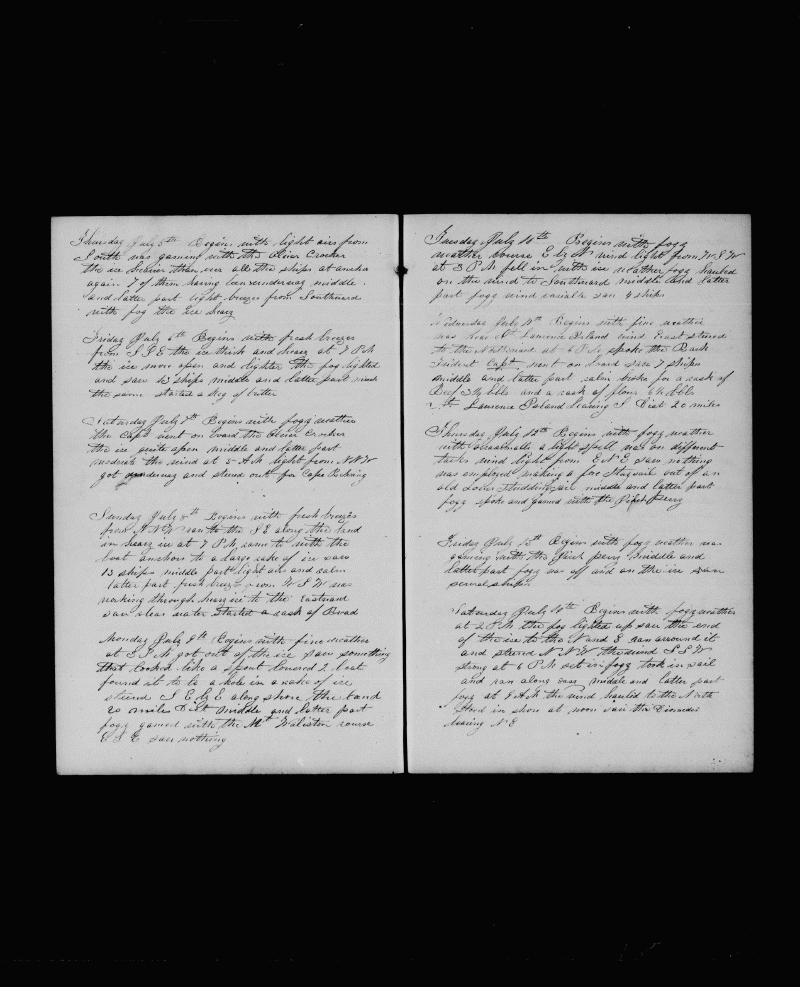 Thursday July 5th Begins with light airs from
South was gaming with the Oliver Crocker
the ice heavier than ever all the ships at anchor
again 7 of them having been underway middle
and latter part light breezes from Southward
with fog the ice heavy
Friday July 6th Begins with fresh breezes
from S S E the ice thick and heavy at 7 P M
the ice more open and lighter the fog lighted
and saw 13 ships middle and latter part much
the same started a Keg of butter
Saturday July 7th Begins with foggy weather
the Capt went on board the Oliver Crocker
the ice quite open middle and latter part
moderate the wind at 5 A M light from N N W
got underway and steered out for Cape Bering
Sunday July 8th Begins with fresh breezes
from N N W ran to the S E along the land
in heavy ice at 7 P M came to with the
boat anchor to a large cake of ice saw
13 ships middle part light airs and calm
latter part fresh breeze from W S W was
working through heavy ice to the Eastward
saw clear water Started a cask of Bread
Monday July 9th Begins with fine weather
at 3 P M got out of the ice saw something
that looked like a spout lowered 2 boat
found it to be a hole in a cake of ice
steered S E by E along shore the land
20 miles Dist middle and latter part
foggy gamed with the Mt Wallaston course
E S E saw nothing
Tuesday July 10th Begins with foggy
weather course E by N wind light from W S W
at 3 P M fell in with ice weather foggy hauled
on the wind to Southward middle and latter
part foggy wind variable saw 4 ships
Wednesday July 11th Begins with fine weather
was near St Laurence Island wind East steered
to the Northward at 6 P M spoke the Bark
Trident Capt went on board saw 7 ships
middle and latter part calm broke for a cask of
Beef 3½ bbls and a cask of flour 6½ bbls
St Laurence Island bearing S Dist 20 miles
Thursday July 12th Begins with foggy weather
with occasionally a light spell was on different
tacks wind light from E N E saw nothing
was employed making a fore staysail out of an
old Lower Studdingsail middle and latter part
foggy spoke and gamed with the Fleet Perry
Friday July 13th Begins with foggy weather was
gaming with the Perry middle and
latter part foggy was off and on the ice saw
several ships
Saturday July 14th Begins with foggy weather
at 2 P M the fog lighted up saw the end
of the ice to the N and E ran arround it
and steered N N W the wind S S W
strong at 6 P M set in foggy took in sail
and ran along easy middle and latter part
foggy at 9 A M the wind hauled to the North
stood in shore at noon saw the Diomedes
bearing N E